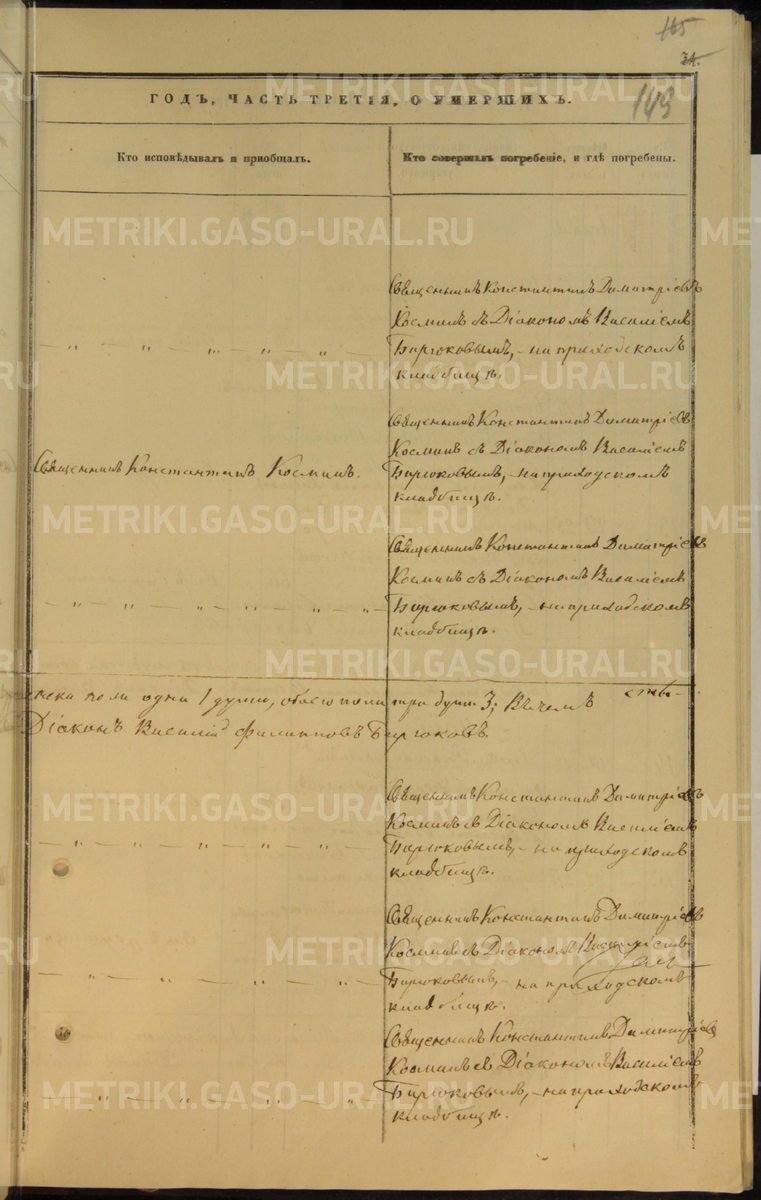 165
34.
ГОДЪ, ЧАСТЬ ТРЕТІЯ, О УМЕРШИХЪ.
149
Кто исповѣдывалъ и пріобщалъ.
Кто совершалъ погребеніе, и гдѣ погребены.
METRIKI.GASO-URAL.RU
Священникъ Константинъ Димитріевъ
Косминъ съ Діакономъ Василіемъ
— „ — „ — „ — „ — „ —
Бирюковымъ, - на приходскомъ
кладбищѣ.
Священникъ Константинъ Димитріевъ
Косминъ съ Діакономъ Василіемъ
Священникъ Константинъ Косминъ.
Бирюковымъ, - на приходскомъ
кладбищѣ.
Священникъ Константинъ Димитріевъ
Косминъ съ Діакономъ Василіемъ
„ — „ — „ — „ — „ — „
Бирюковымъ, - на приходскомъ
кладбищѣ.
пола одна 1 душа, обоего пола три души 3; Въ чемъ
Діаконъ Василій Филипповъ Бирюковъ
Священникъ Константинъ Димитріевъ
Косминъ съ Діакономъ Василіемъ
— „ — „ — „ — „ — „ —
Бирюковымъ, - на приходскомъ
кладбищѣ.
Священникъ Константинъ Димитріевъ
Косминъ съ Діакономъ Василіемъ
— „ — „ — „ — „ — „ —
Бирюковымъ, - на приходскомъ
кладбищѣ.
Священникъ Константинъ Димитріевъ
Косминъ съ Діакономъ Василіемъ
„ — „ — „ — „ — „ — „
Бирюковымъ, - на приходскомъ
кладбищѣ.